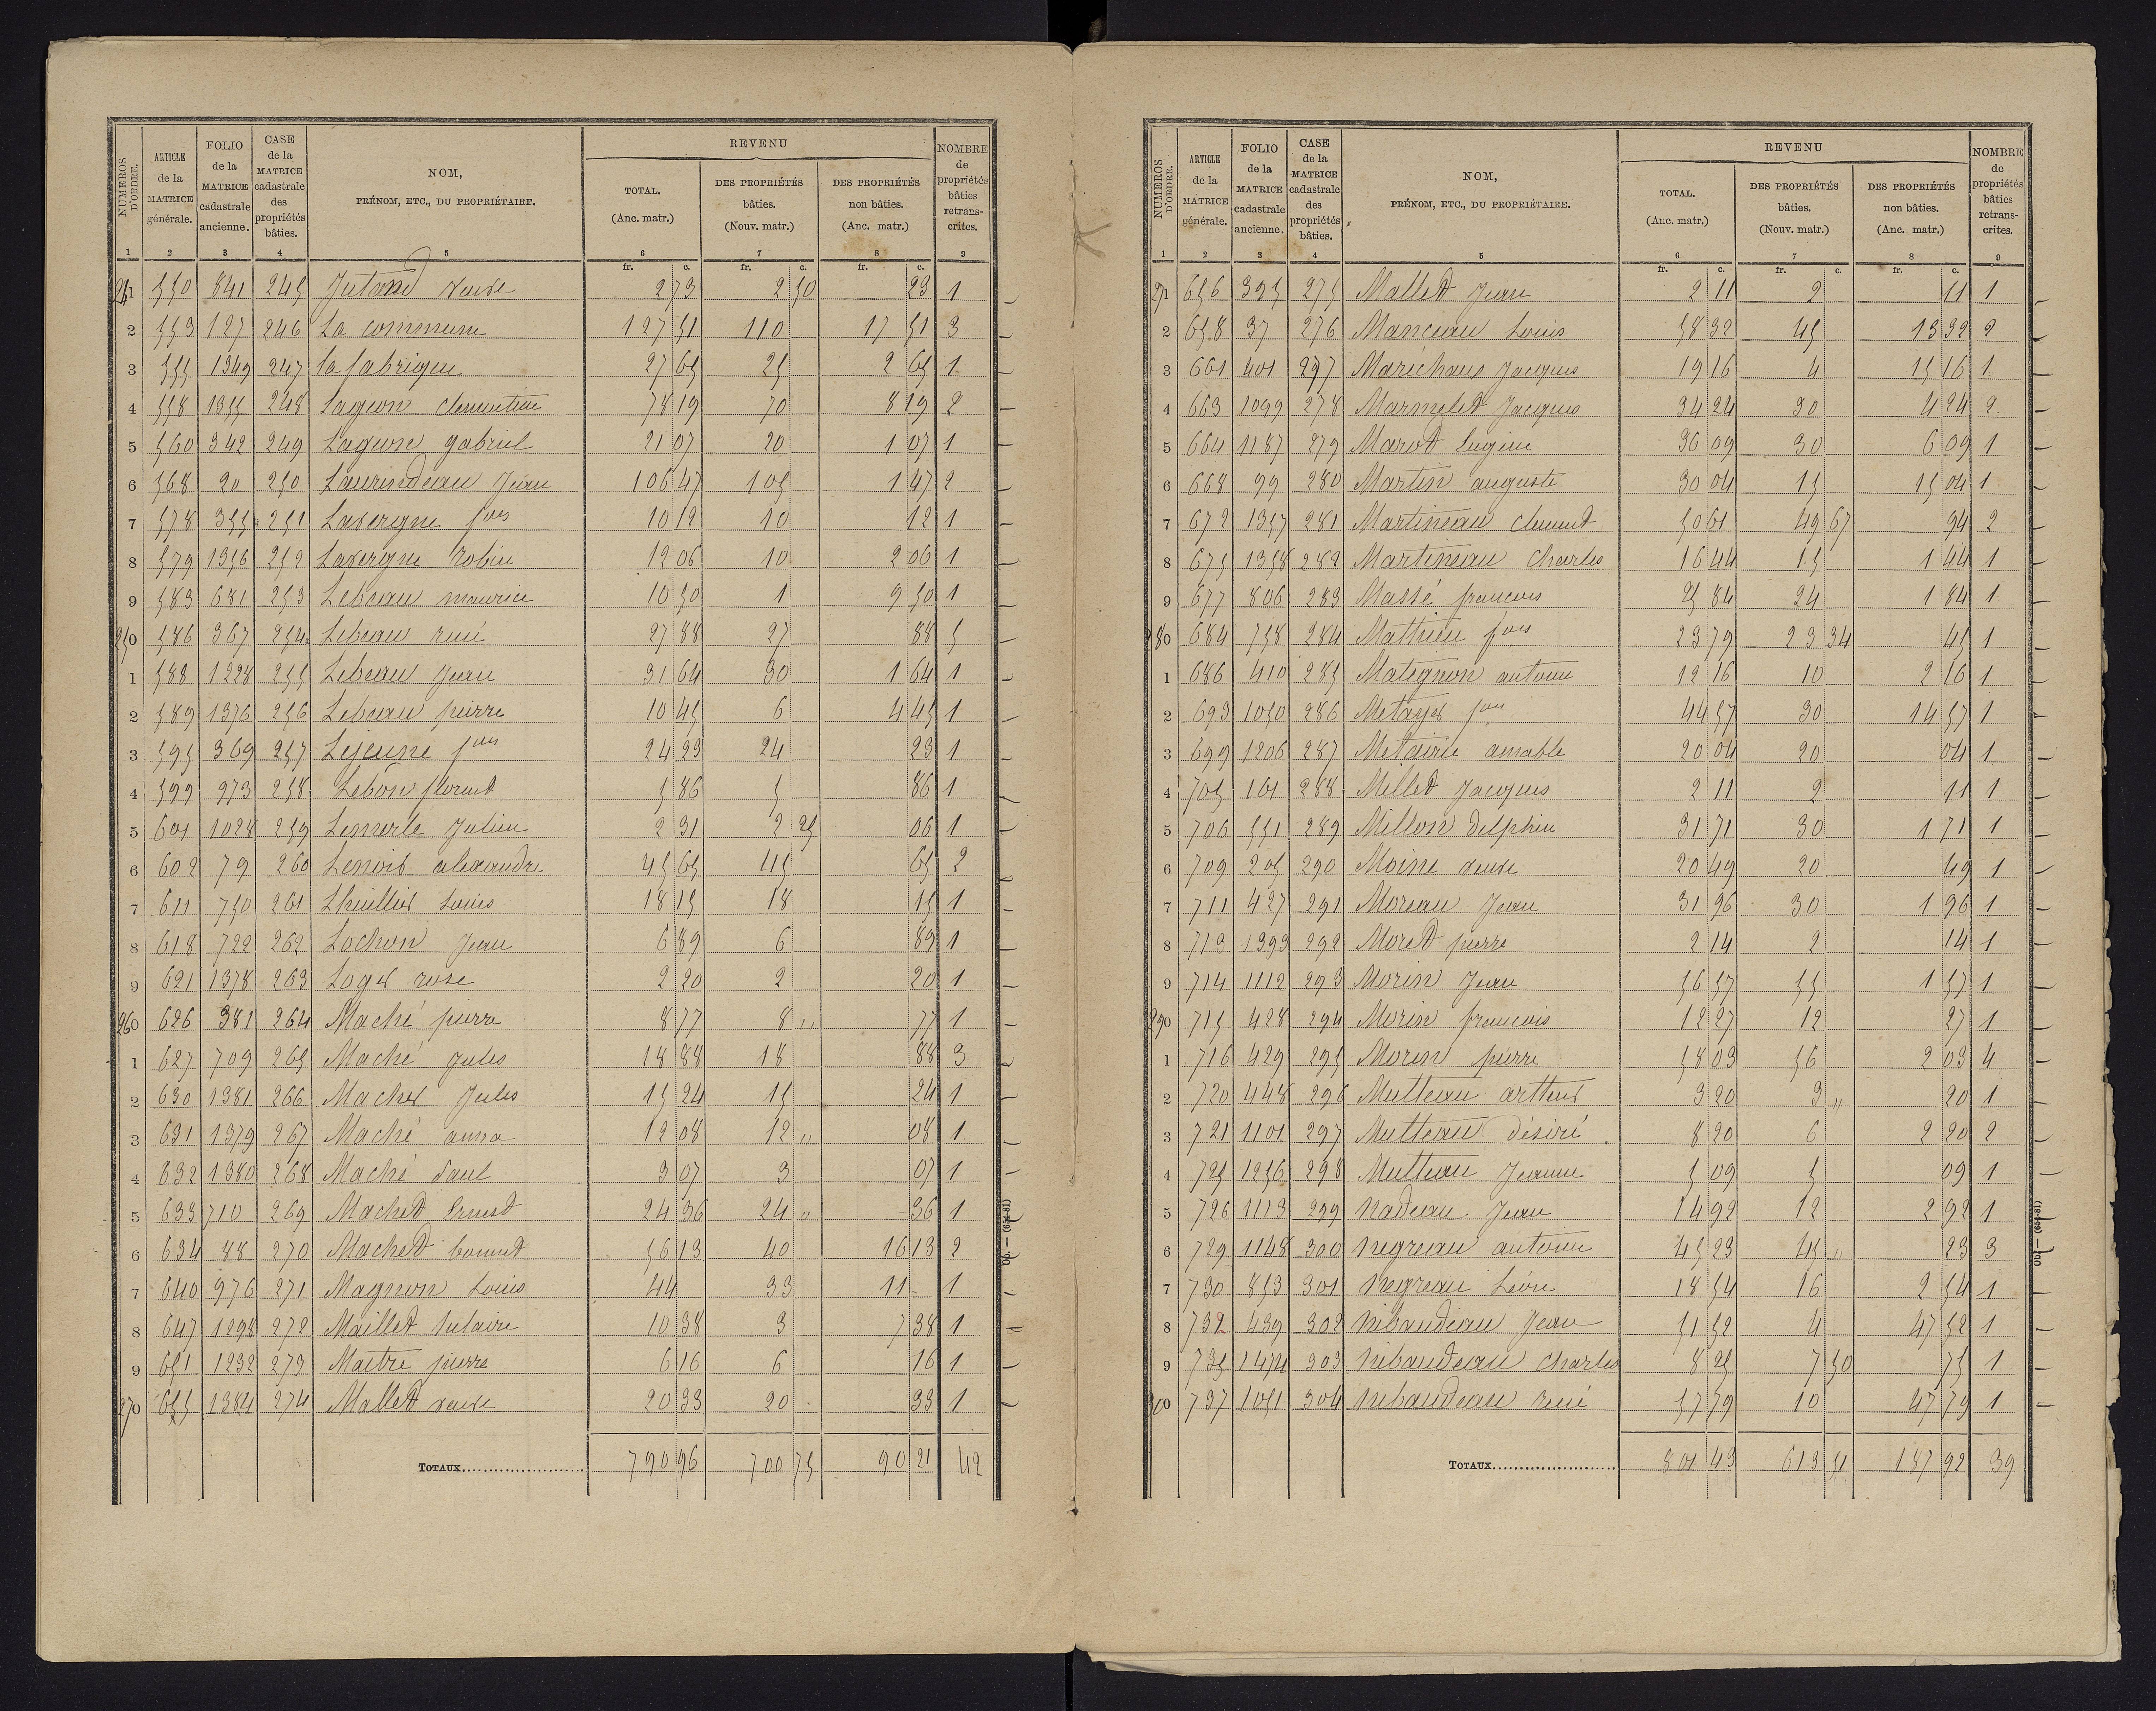 NUMÉROS D'ORDRE. ARTICLE de la MATRICE générale. FOLIO de la MATRICE cadastrale ancienne. CASE de la MATRICE cadastrale des propriétés bâties. NOM, PRÉNOM, ETC., DU PROPRIÉTAIRE. REVENU TOTAL. (Anc. matr.) DES PROPRIÉTÉS bâties. (Nouv. matr.) DES PROPRIÉTÉS non bâties. (Anc. matr.) NOMBRE de propriétés bâties retranscrites.
1 2 3 4 5 6 7 8 9
fr. c. fr. c. fr. c.
241 550 841 245 Jutand veuve 2 73 2 50 23 1
2 553 127 246 La commune 127 51 110 17 51 3
3 555 1349 247 la fabrique 27 65 25 2 65 1
4 558 1355 248 Lageon clementine 78 19 70 8 19 2
5 560 342 249 Lageon gabriel 21 07 20 1 07 1
6 568 20 250 Laurindeau Jean 106 47 105 1 47 2
7 578 355 251 Lavergne fois 10 12 10 12 1
8 579 1356 252 Lavergne robin 12 06 10 2 06 1
9 583 681 253 Lebeau maurice 10 50 1 9 50 1
250 586 367 254 Lebeau rené 27 88 27 88 5
1 588 1228 255 Lebeau Jean 31 64 30 1 64 1
2 589 1376 256 Lebeau pierre 10 45 6 4 45 1
3 595 369 257 Lejeune fois 24 23 24 23 1
4 599 973 258 Lebon florent 5 86 5 86 1
5 601 1028 259 Lemerle Julien 2 31 2 25 06 1
6 602 79 260 Lenoir alexandre 45 65 45 65 2
7 611 750 261 Lhuillier Louis 18 15 18 15 1
8 618 722 262 Lochon Jean 6 89 6 89 1
9 621 1378 263 Loger rose 2 20 2 20 1
260 626 381 264 Maché pierre 8 77 8 " 77 1
1 627 709 265 Maché Jules 18 88 18 88 3
2 630 1381 266 Macher Jules 15 24 15 24 1
3 631 1379 267 Maché anna 12 08 12 " 08 1
4 632 1380 268 Maché Paul 3 07 3 07 1
5 633 710 269 Machet Ernest 24 36 24 " 36 1
6 634 88 270 Machet 56 13 40 16 13 2
7 640 976 271 Magnon Louis 44 33 11 1
8 647 1298 272 Maillet hilaire 10 38 3 7 38 1
9 651 1232 273 Maitre pierre 6 16 6 16 1
270 655 1384 274 Mallet veuve 20 33 20 33 1
TOTAUX 790 96 700 75 90 21 42
Obj — (654-81)
NUMÉROS D'ORDRE. ARTICLE de la MATRICE générale. FOLIO de la MATRICE cadastrale ancienne. CASE de la MATRICE cadastrale des propriétés bâties. NOM, PRÉNOM, ETC., DU PROPRIÉTAIRE. REVENU TOTAL. (Anc. matr.) DES PROPRIÉTÉS bâties. (Nouv. matr.) DES PROPRIÉTÉS non bâties. (Anc. matr.) NOMBRE de propriétés bâties retranscrites.
1 2 3 4 5 6 7 8 9
fr. c. fr. c. fr. c.
271 656 395 275 Mallet Jean 2 11 2 11 1
2 658 37 276 Manceau Louis 58 32 45 13 32 2
3 661 401 277 Maréchaux Jacques 19 16 4 15 16 1
4 663 1099 278 Marmelet Jacques 34 24 30 4 24 2
5 664 1187 279 Marot Eugène 36 09 30 6 09 1
6 668 99 280 Martin auguste 30 04 15 15 04 1
7 672 1357 281 Martineau clement 50 61 49 67 94 2
8 675 1358 282 Martineau Charles 16 44 15 1 44 1
9 677 806 283 Massé francois 25 84 24 1 84 1
280 684 758 284 Mathieu fois 23 79 23 34 45 1
1 686 410 285 Matignon antoine 12 16 10 2 16 1
2 693 1050 286 Metayer fois 44 57 30 14 57 1
3 699 1206 287 Metairie amable 20 04 20 04 1
4 705 161 288 Millet Jacques 2 11 2 11 1
5 706 551 289 Millon Delphin 31 71 30 1 71 1
6 709 205 290 Moine veuve 20 49 20 49 1
7 711 427 291 Moreau Jean 31 96 30 1 96 1
8 713 1393 292 Moret pierre 2 14 2 14 1
9 714 1112 293 Morin Jean 56 57 55 1 57 1
290 715 428 294 Morin francois 12 27 12 27 1
1 716 429 295 Morin pierre 58 03 56 2 03 4
2 720 448 296 Mutteau artheur 3 20 3 " 20 1
3 721 1101 297 Mutteau désiré 8 20 6 2 20 2
4 725 1256 298 Mutteau Jeanne 5 09 5 09 1
5 726 1113 299 Nadeau Jean 14 92 12 2 92 1
6 729 1148 300 Negreau antoine 45 23 45 " 23 3
7 730 853 301 Negreau Léon 18 54 16 2 54 1
8 732 439 302 Nibaudeau Jean 51 52 4 47 52 1
9 735 1474 303 Nibaudeau Charles 8 25 7 50 75 1
300 737 1051 304 Nibaudeau René 57 79 10 47 79 1
TOTAUX 801 43 613 51 187 92 39
Obj — (654-81)